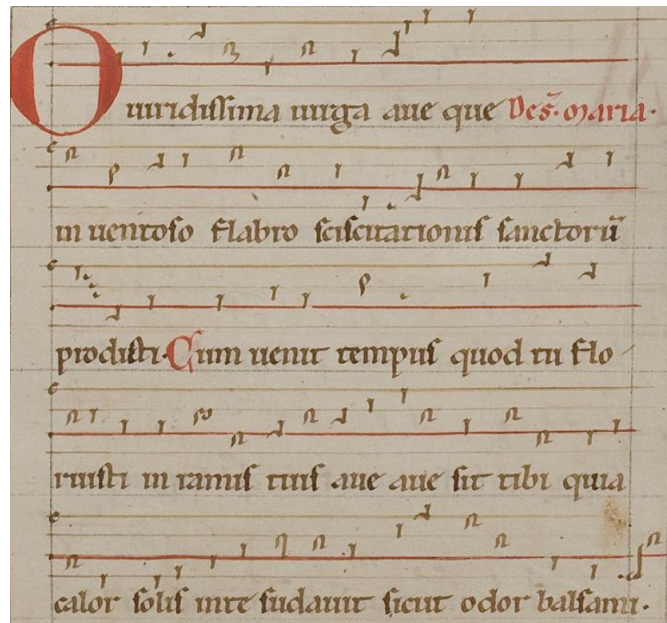 O uiridissima uirga aue que De s̄. maria.
in uentoso flabro sciscitationis sanctorū
prodisti. Cum uenit tempus quod tu flo
ruisti in ramis tuis aue aue sit tibi quia
calor solis in te sudauit sicut odor balsami.